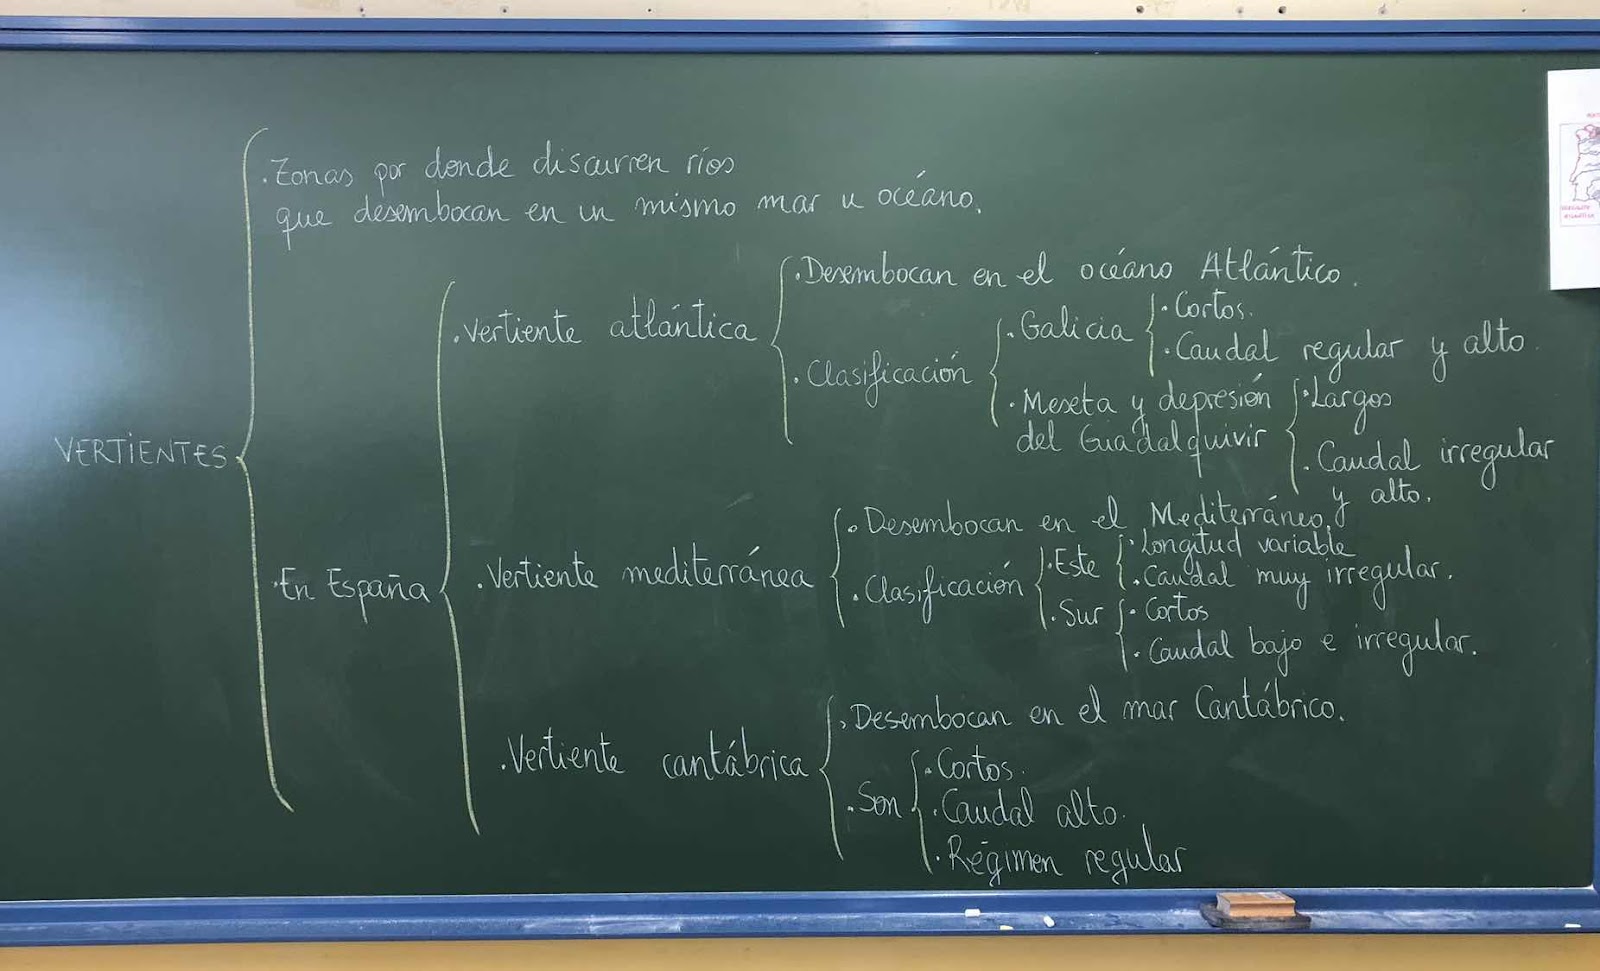 VERTIENTES
. Zonas por donde discurren ríos
que desembocan en un mismo mar u océano.
. En España
. Vertiente atlántica
. Desembocan en el océano Atlántico.
. Clasificación
. Galicia
. Cortos.
. Caudal regular y alto.
. Meseta y depresión
del Guadalquivir
. Largos
. Caudal irregular
y alto.
. Vertiente mediterránea
. Desembocan en el Mediterráneo.
. Clasificación
. Este
. Longitud variable
. Caudal muy irregular.
. Sur
. Cortos
. Caudal bajo e irregular.
. Vertiente cantábrica
. Desembocan en el mar Cantábrico.
. Son
. Cortos.
. Caudal alto.
. Régimen regular